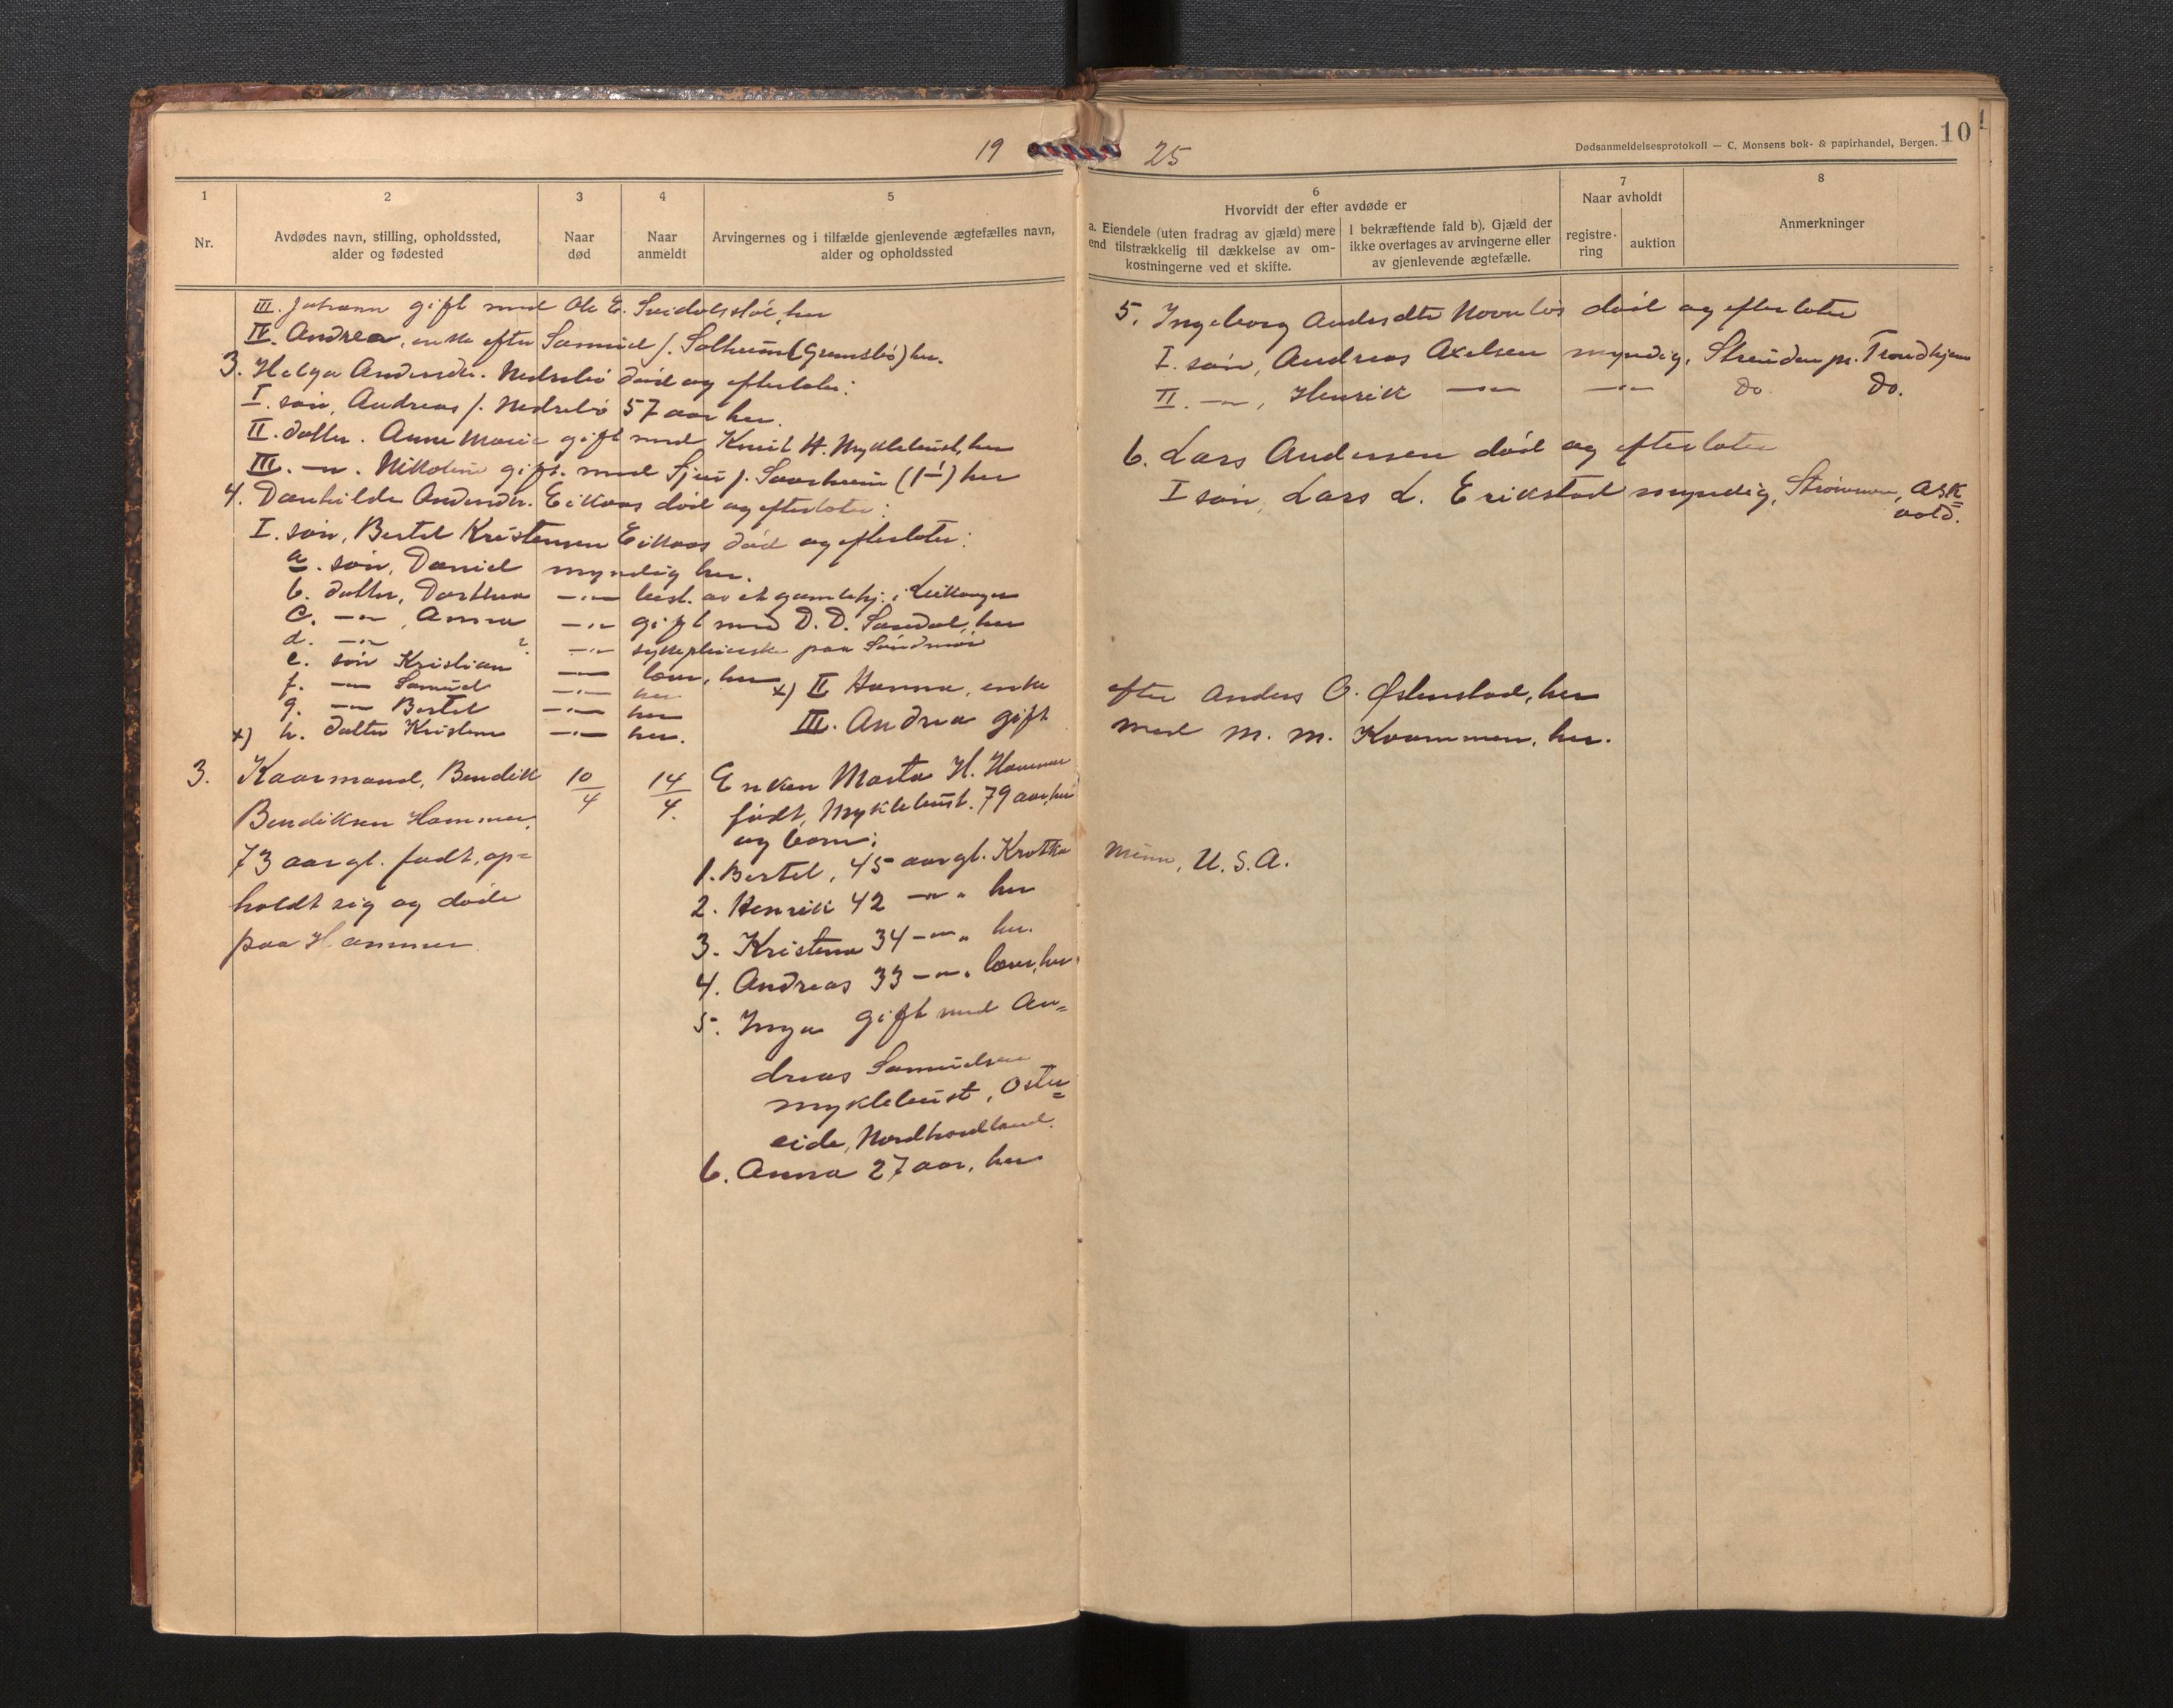 19 25
Dødsanmeldelsesprotokoll — C. Monsens bok- & papirhandel, Bergen.
10
1
Nr.
2
Avdødes navn, stilling, opholdssted,
alder og fødested
3
Naar
død
4
Naar
anmeldt
5
Arvingernes og i tilfælde gjenlevende ægtefælles navn,
alder og opholdssted
6
Hvorvidt der efter avdøde er
a. Eiendele (uten fradrag av gjæld) mere
end tilstrækkelig til dækkelse av om-
kostningerne ved et skifte.
I bekræftende fald b). Gjæld der
ikke overtages av arvingerne eller
av gjenlevende ægtefælle.
7
Naar avholdt
registre-
ring
auktion
8
Anmerkninger
III. Johann gift med Ole E. her
IV. Andrea, enke efter Samuel J. Solheim (Grimsbö) her.
3. Helga Andersdtr. Nedrebö död og efterlater:
I. sön, Andreas J. Nedrebö 57 aar her.
II. datter. Anne Marie gift med Knut H. Myklebust, her
III. —"—. Nikoline gift. med Sjur J. Saarheim (1/1) her
4. Danhilde Andersdtr. Eikaas död og efterlater:
I. sön, Bertel Kristensen Eikaas död og efterlater:
a. sön, Daniel myndig her.
b. datter, Dorthea —"— best. av et gamlehj. i Leikanger
c. —"—, Anna —"— gift med D. D. Sandal, her
d. —"— ? —"— sykepleierske paa Söndmör
e. sön Kristian —"— lærer, her
f. —"— Samuel —"— her
g. —"— Bertel —"— her
x) h. datter Kristine —"— her.
x) II Hanna, enke
III. Andrea gift
3. Kaarmand, Bendik
Bendiksen Hammer,
73 aar gl. født, op=
holdt sig og døde
paa Hammer.
10/4
14/4.
Enken Marta H. Hammer
født, Myklebust. 79 aar, her
og born:
1. Bertel, 45 aar gl.
2. Henrik 42 —"— " her
3. Kristina 34 —"— " her.
4. Andreas 33 —"— " lærer, her.
5. Inga gift med An=
dreas Samuelsen
Myklebust, Oster=
eide, Nordhordland.
6. Anna 27 aar, her
5. Ingeborg Andersdtr död og efterlater
I. sön, Andreas Axelsen myndig, Strinden pr. Trondhjem
II. —"—, Henrik —"— —"— do do.
6. Lars Andersen död og efterlater
I sön, Lars L. Erikstad myndig, Strömmen, Ask=
vold.
efter Anders O. Østenstad, her
med M. M. Kvammen, her.
Minn, U.S.A.